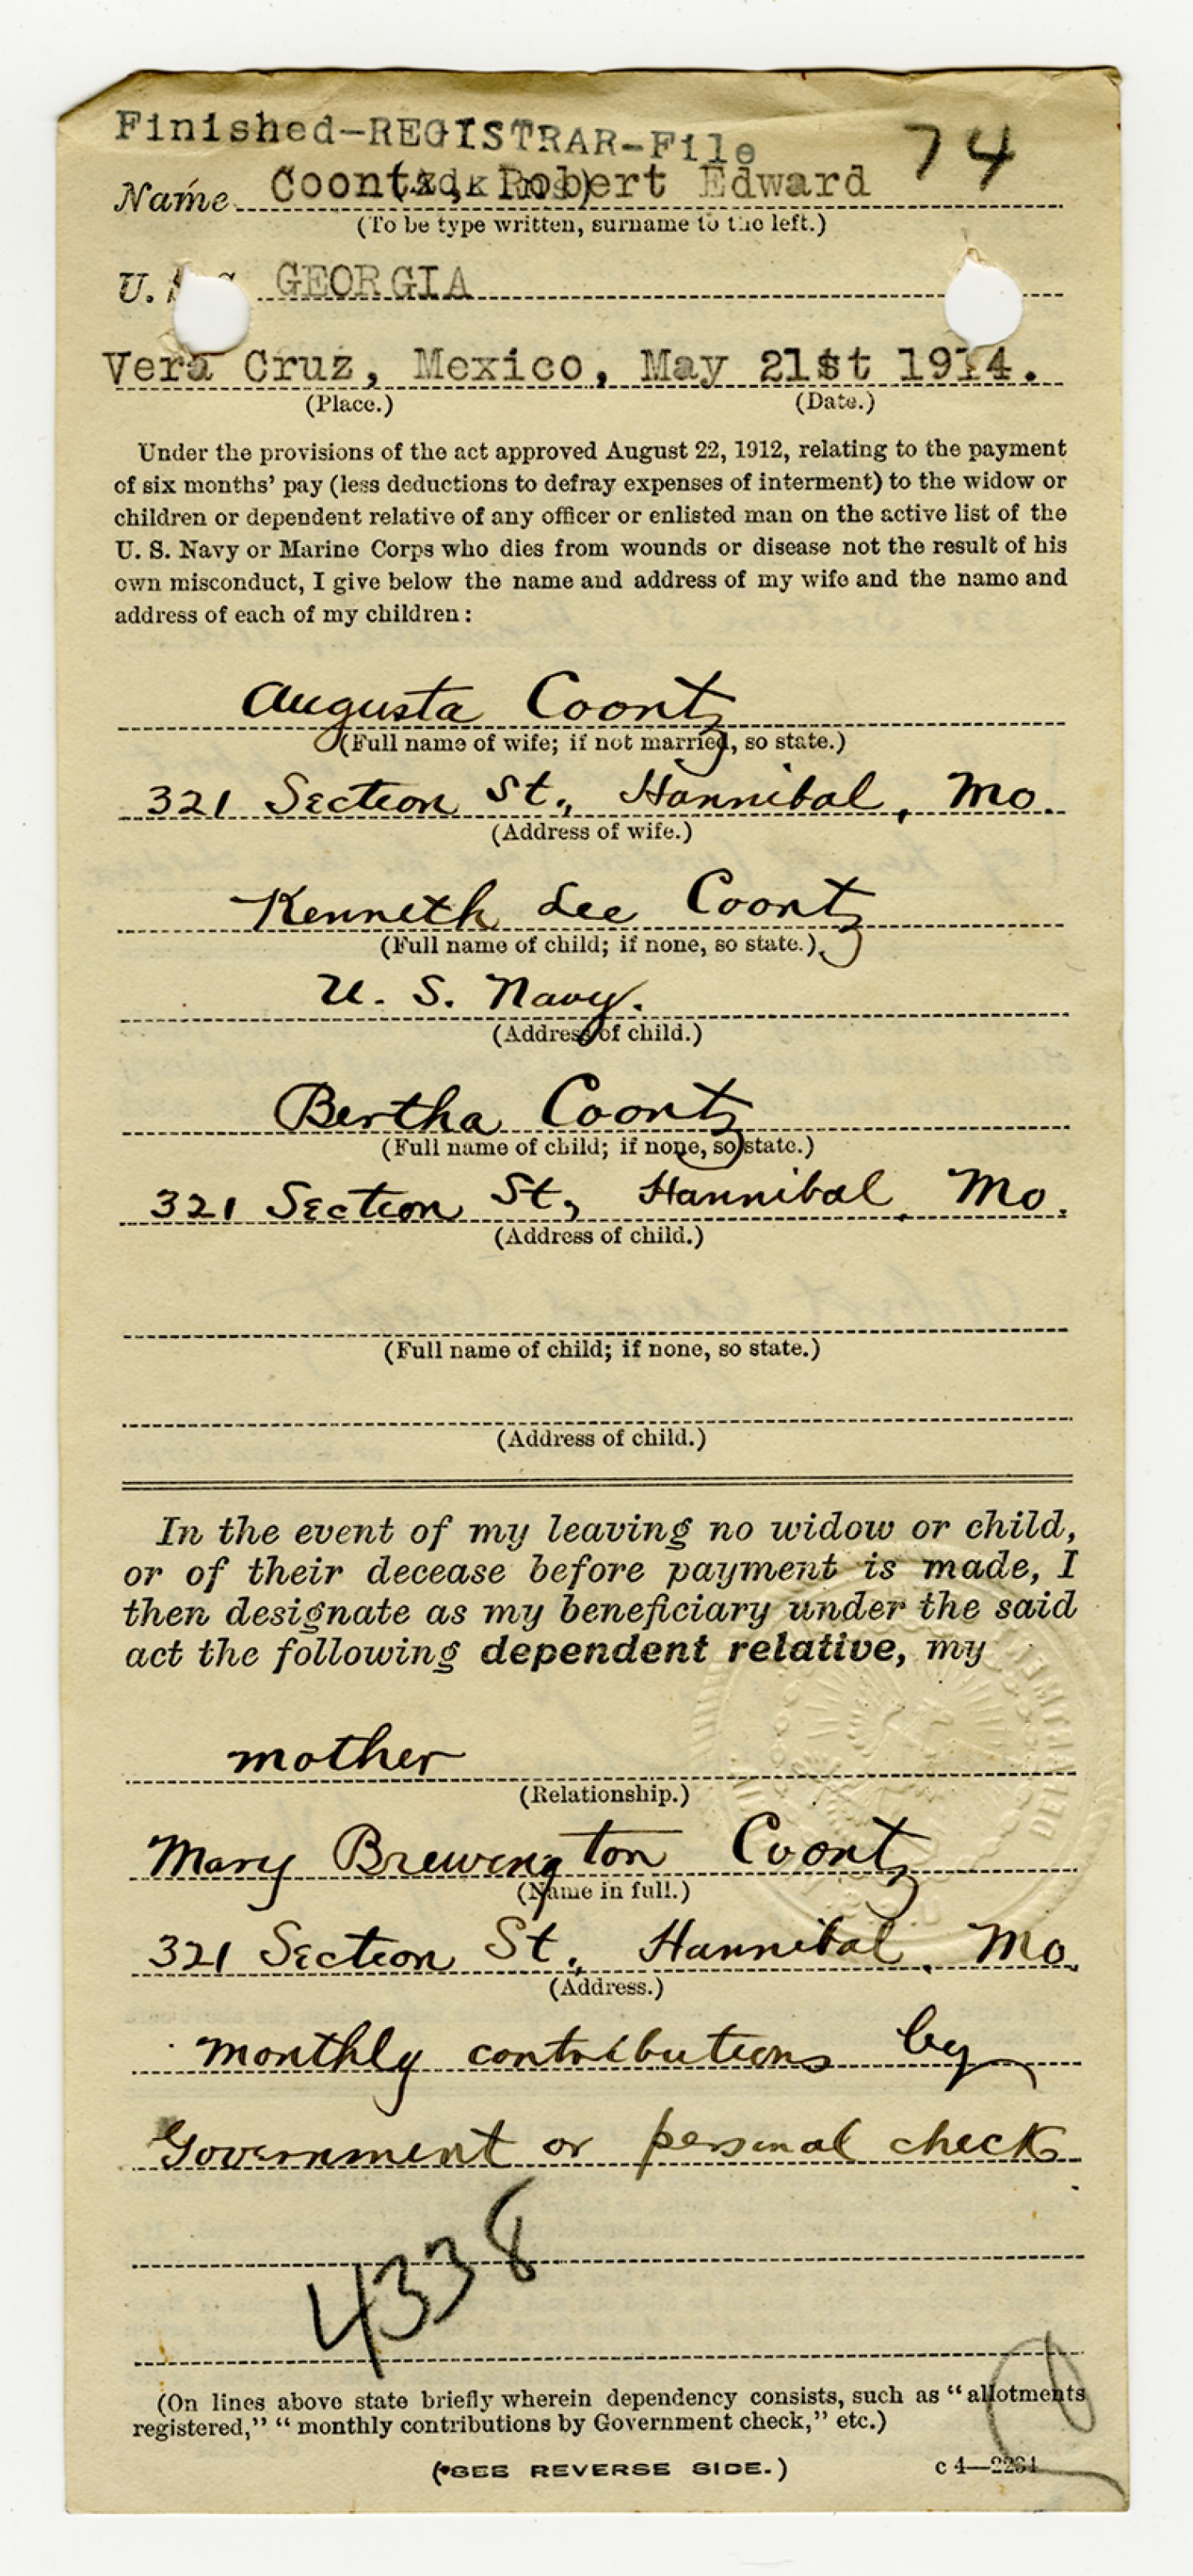 Finished-REGISTRAR-File
74
Name Coontz, Robert Edward
(To be type written, surname to the left.)
U. S. S. GEORGIA
Vera Cruz, Mexico, May 21st 1914.
(Place.) (Date.)
Under the provisions of the act approved August 22, 1912, relating to the payment
of six months' pay (less deductions to defray expenses of interment) to the widow or
children or dependent relative of any officer or enlisted man on the active list of the
U. S. Navy or Marine Corps who dies from wounds or disease not the result of his
own misconduct, I give below the name and address of my wife and the name and
address of each of my children:
Augusta Coontz
(Full name of wife; if not married, so state.)
321 Section St., Hannibal, Mo.
(Address of wife.)
Kenneth Lee Coontz
(Full name of child; if none, so state.)
U. S. Navy.
(Address of child.)
Bertha Coontz
(Full name of child; if none, so state.)
321 Section St, Hannibal, Mo.
(Address of child.)
(Full name of child; if none, so state.)
(Address of child.)
In the event of my leaving no widow or child,
or of their decease before payment is made, I
then designate as my beneficiary under the said
act the following dependent relative, my
mother
(Relationship.)
Mary Brewington Coontz
(Name in full.)
321 Section St., Hannibal, Mo.
(Address.)
monthly contributions by
Government or personal check
4338
(On lines above state briefly wherein dependency consists, such as "allotments
registered," "monthly contributions by Government check," etc.)
(*SEE REVERSE SIDE.)
c 4—2264